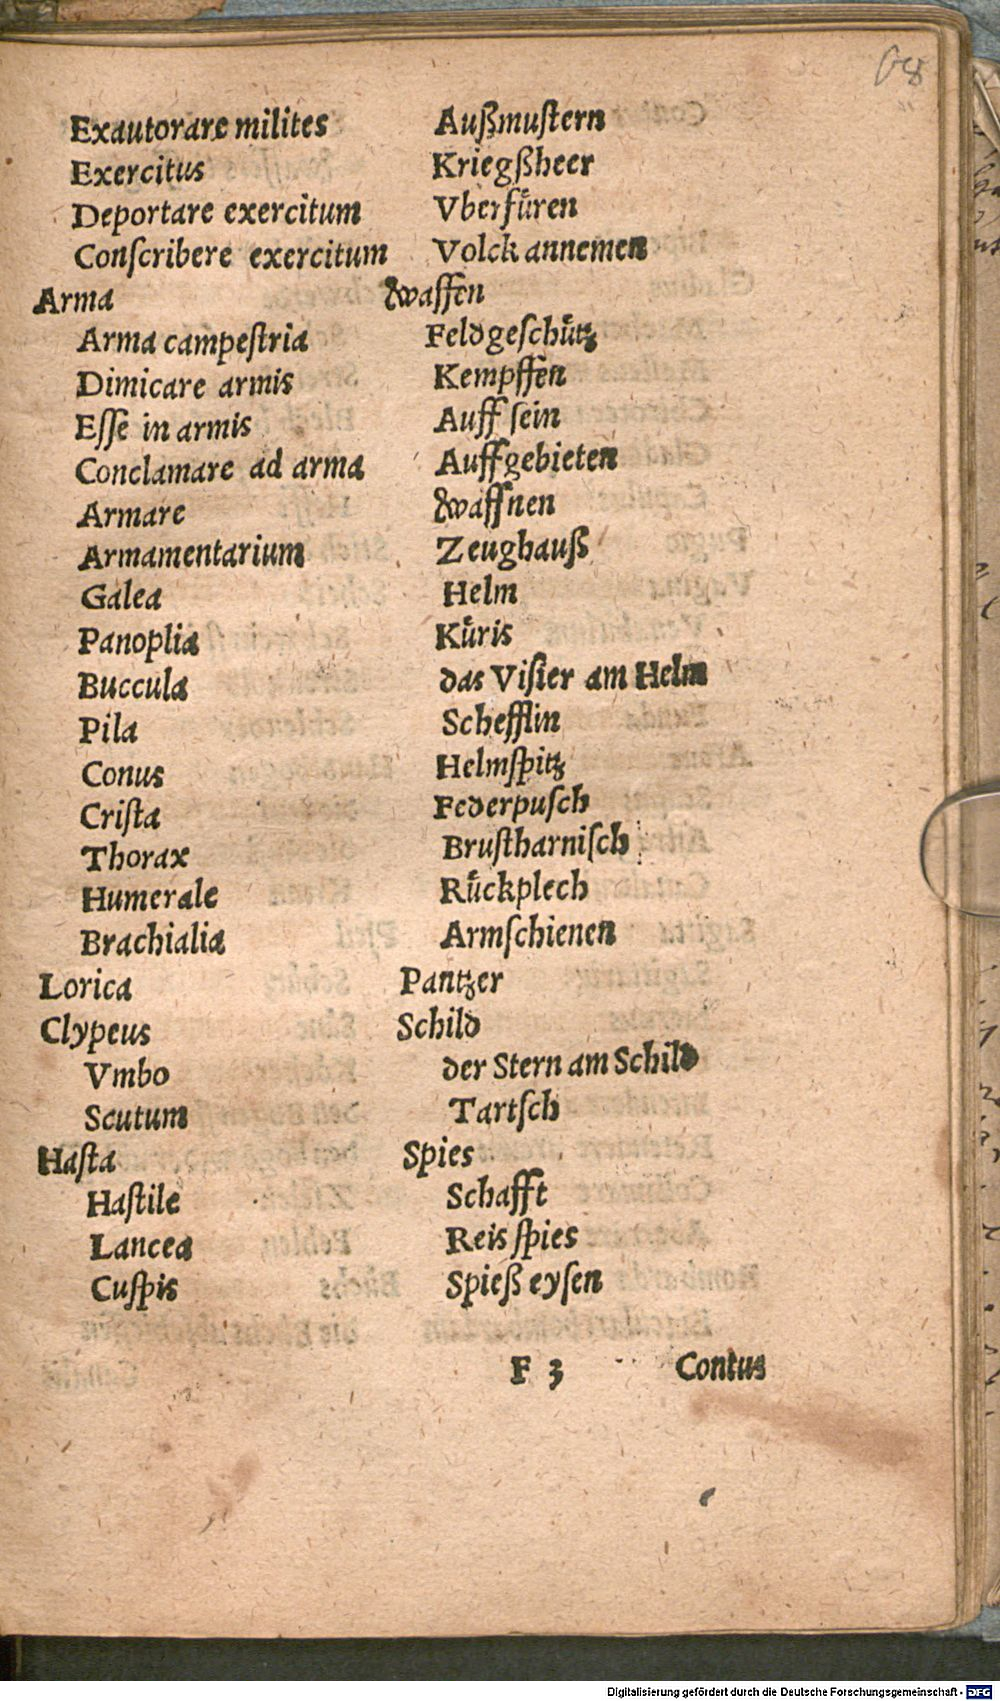 68
Exautorare milites Außmuſtern
Exercitus Kriegßheer
Deportare exercitum Vberfuͤren
Conſcribere exercitum Volck annemen
Arma Waffen
Arma campeſtria Feldgeſchuͤtz
Dimicare armis Kempffen
Eſſe in armis Auff ſein
Conclamare ad arma Auffgebieten
Armare Waffnen
Armamentarium Zeughauß
Galea Helm
Panoplia Kuͤris
Buccula das Viſier am Helm
Pila Schefflin
Conus Helmſpitz
Criſta Federpuſch
Thorax Bruſtharniſch
Humerale Ruͤckplech
Brachialia Armſchienen
Lorica Pantzer
Clypeus Schild
Vmbo der Stern am Schild
Scutum Tartſch
Haſta Spies
Haſtile Schafft
Lancea Reis ſpies
Cuſpis Spieß eyſen
F 3 Contus
Digitalisierung gefördert durch die Deutsche Forschungsgemeinschaft - DFG